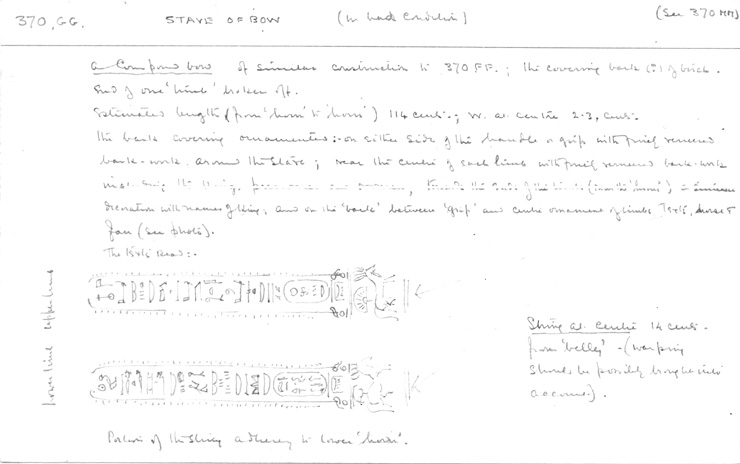 370, GG. STAVE OF BOW (In bad condition) (See 370 MM)
a Compound bow of similar construction to 370 FF.; the covering bark (?) of birch.
End of one 'limb' broken off.
Estimated length (from 'horn' to 'horn') 114 cent.; W. at centre 2.3, cent.
The bark covering ornamented:- on either side of the handle or grip with finely veneered
bark-work around the stave; near the centre of each limb with finely veneered bark-work
decoration with names of King; and on the 'back' between 'grip' and centre ornament of limbs Texts,
(see photo).
The texts read:-
upper limb
lower limb
String at centre 14 cent.
from 'belly' - (warping
should be possibly brought into
account).
Portion of the string adhering to lower 'horn'.